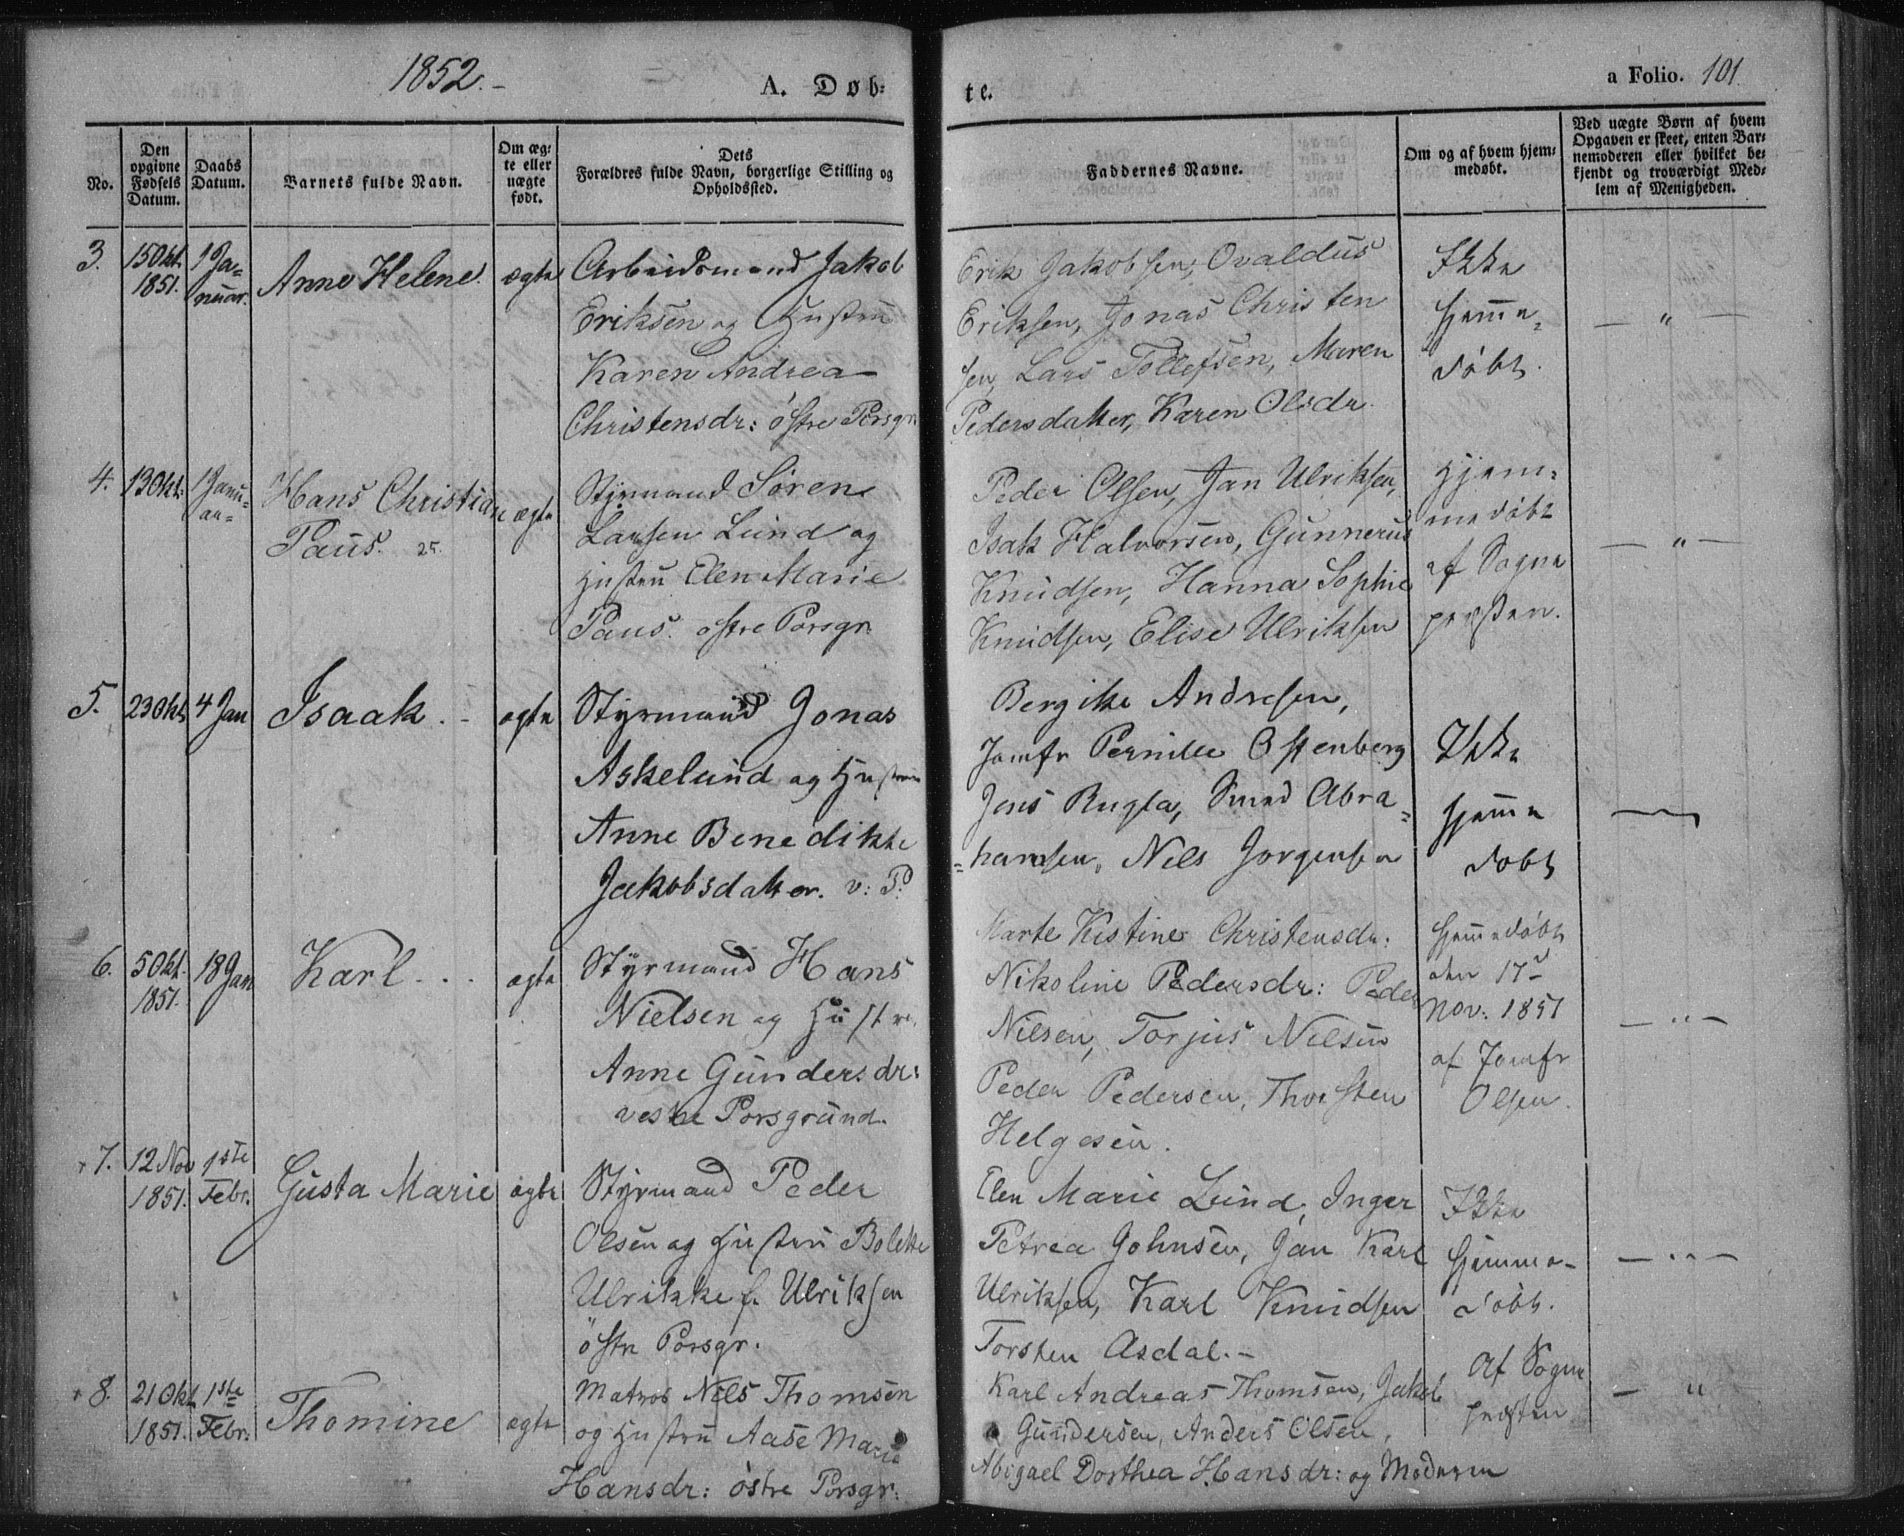 1852.-
A. Døb-
te.
a Folio. 101.
No.
Den opgivne Fødsels Datum.
Daabs Datum.
Barnets fulde Navn.
Om æg-
te eller
uægte
født.
Dets
Forældres fulde Navn, borgerlige Stilling og
Opholdssted.
Faddernes Navne.
Om og af hvem hjem-
medøbt.
Ved uægte Børn af hvem
Opgaven er skeet, enten Bar-
nemoderen eller hvilket be-
kjendt og troværdigt Med-
lem af Menigheden.
3.
15 Okt.
1851.
1 Ja-
nuar.
Anne Helene.
ægte
Arbeidsmand Jakob
Eriksen og Hustru
Karen Andrea
Christensdr: østre Porsgr
Erik Jakobsen, Ovaldus
Eriksen, Jonas Christen
sen, Lars Tollefsen, Maren
Pedersdatter, Karen Olsdr.
Ikke
hjemme-
døbt.
— " —
4.
13 Okt.
1 Janu-
ar-
Hans Christian
Paus.
ægte
Styrmand Søren
Larsen Lund og
Hustru Elen Marie
Paus. østre Porsgr
Peder Olsen, Jan Ulriksen,
Isak Halvorsen, Gunnerius
Knudsen, Hanna Sophie
Knudsen, Elise Ulriksen
Hjem-
medøbt
af Sogne
præsten.
— " —
5.
23 Okt
4 Jan
Isaak. -
ægte
Styrmand Jonas
Askelund og Hustru
Anne Benedikte
Jakobsdatter. v: P.
Bergitte Andresen,
Jomfr Pernille Ostenberg
Jens Rugla, Smed Abra-
-hamsen, Nils Jørgensen
Ikke
hjemme
døbt
—
6.
5 Okt.
1851.
18 Jan
Karl. . .
ægte
Styrmand Hans
Nielsen og Hustru
Anne Gundersdr:
vestre Porsgrund.
Marte Kistine Christensdr:
Nikoline Pedersdr: Peder
Nilsen, Torjus Nilsen
Peder Pedersen, Thorsten
Helgesen.
Hjemmedøbt
den 17d
Nov: 1851
af Jomfr
Olsen.
— " —
7.
12 Nov
1851.
1ste
Febr.
Gusta Marie
ægte
Styrmand Peder
Olsen og Hustru Bolette
Ulrikke f. Ulriksen
østre Porsgr.
Elen Marie Lund, Inger
Petrea Johnsen, Jan Karl
Ulriksen, Karl Knudsen
Torsten Asdal.-
Ikke
hjemme-
døbt.
— " —
8.
21 Okt.
1851.
1ste
Febr.
Thomine
ægte
Matros Nils Thomsen
og Hustru Aase Marie
Hansdr: østre Porsgr.
Karl Andreas Thomsen, Jakob
Gundersen, Anders Olsen,
Abigael Dorthea Hansdr: og Moderen
Af Sogne
præsten
— "